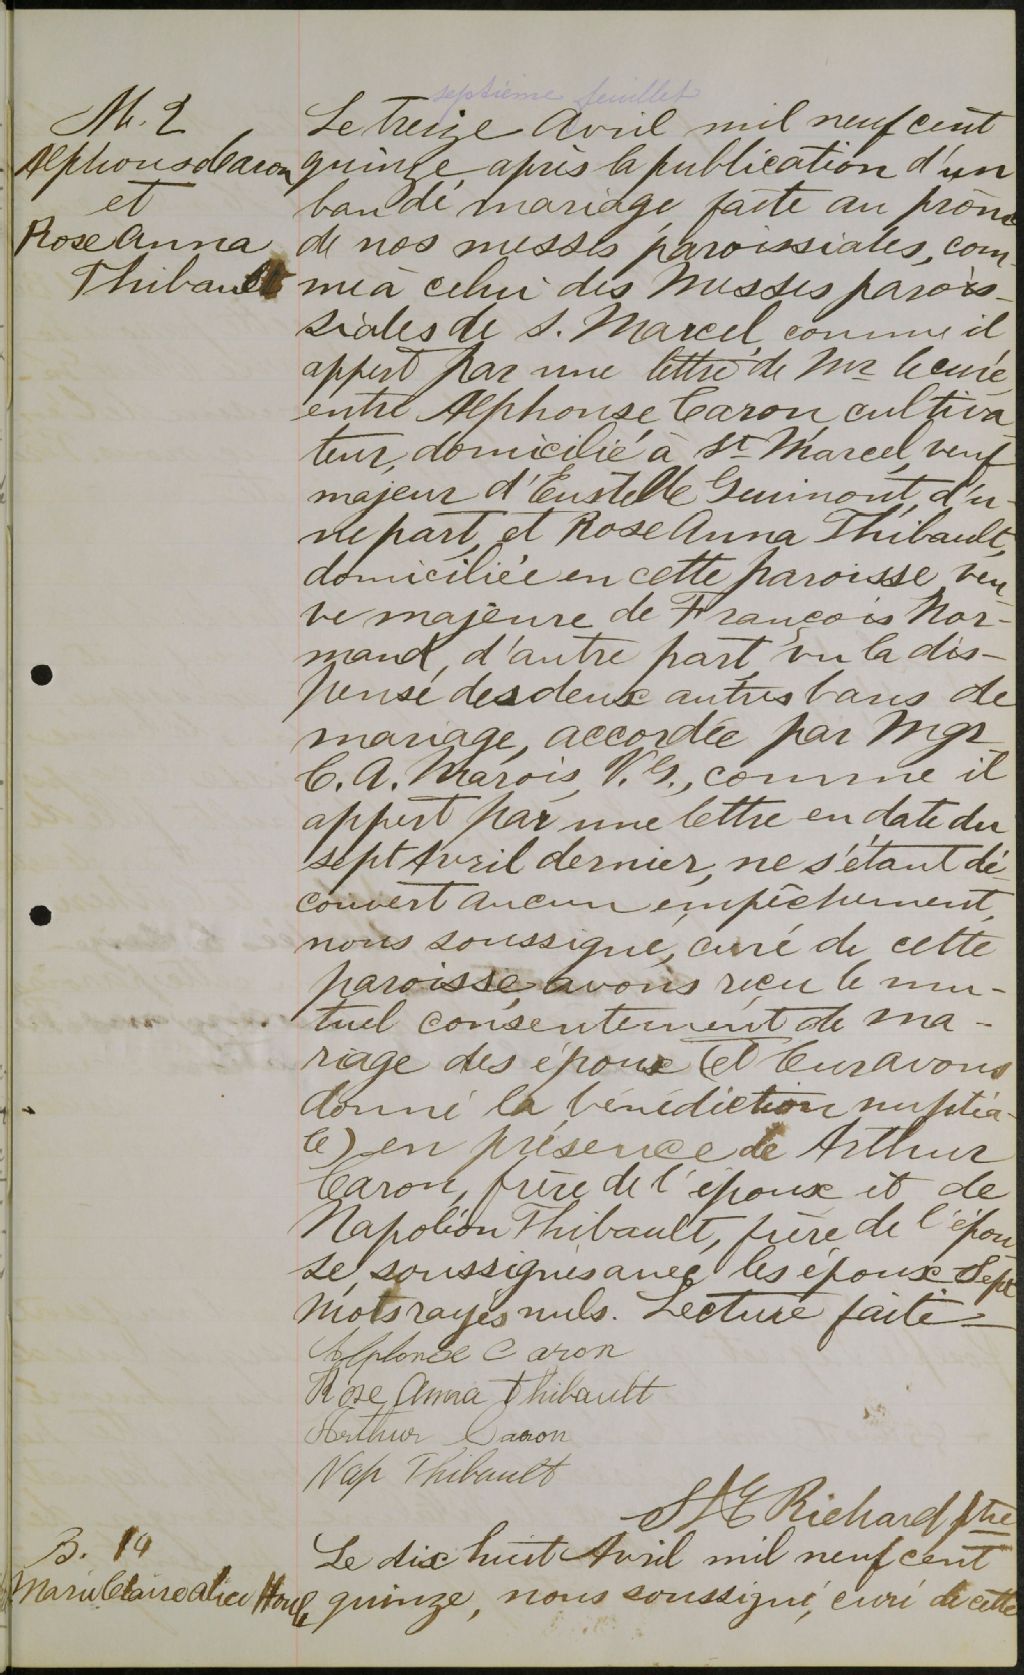 septième feuillet
M. 2
Alphonse Caron
et
Rose Anna
Thibault
Le treize Avril mil neuf cent
quinze, après la publication d'un
ban de mariage, faite au prône
de nos messes paroissiales, com-
me à celui des Messes parois-
siales de S. Marcel, comme il
appert par une lettre de Mr le curé,
entre Alphonse Caron, cultiva-
teur, domicilié à St Marcel, veuf
majeur d'Eustelle Guimont, d'u-
ne part, et Rose Anna Thibault,
domiciliée en cette paroisse, veu-
ve majeure de François Nor-
mand, d'autre part, vu la dis-
pense des deux autres bans de
mariage, accordée par Mgr
C. A. Marois, V. G., comme il
appert par une lettre en date du
sept Avril dernier, ne s'étant dé-
couvert aucun empêchement,
nous soussigné, curé de cette
paroisse, avons reçu le mu-
tuel consentement de ma-
riage des époux (et leur avons
donné la bénédiction nuptia-
le) en présence de Arthur
Caron, frère de l'époux et de
Napoléon Thibault, frère de l'épou-
se, soussignés avec les époux. Sept
mots rayés nuls. Lecture faite =
Alphonse Caron
Rose Anna Thibault
Arthur Caron
Nap Thibault
Richard Ptre
B. 14
Marie Claire Alice Houle
Le dix huit Avril mil neuf cent
quinze, nous soussigné, curé de cette